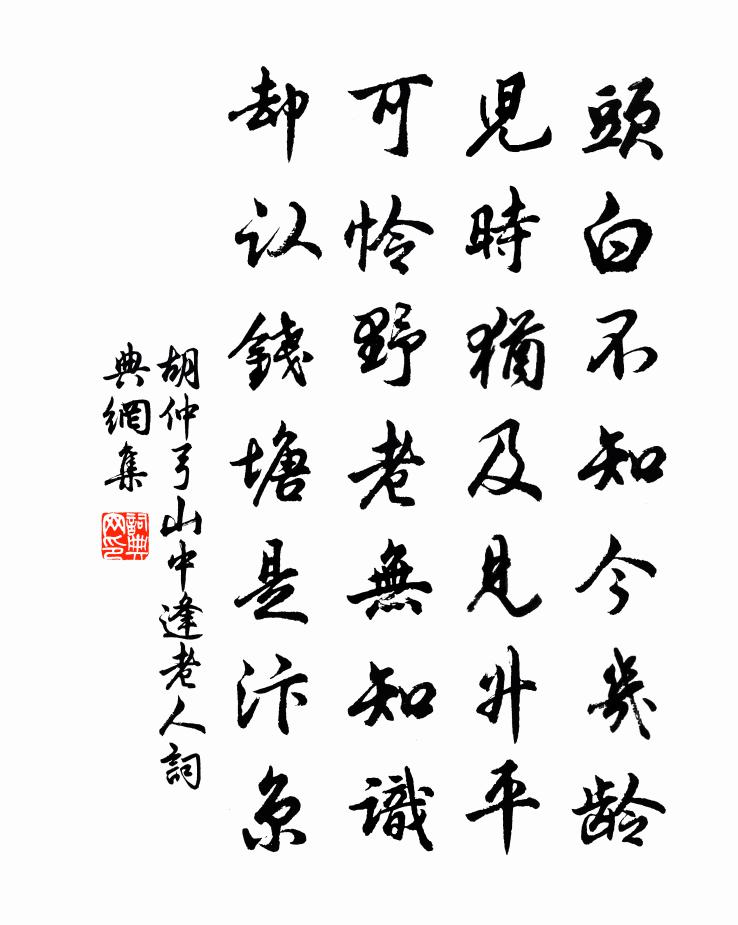 頭白不知今幾齡
兒時猶及見升平
可怜野老無知識
却认錢塘是汴京
胡仲弓山中逢老人詞
典網集
詞典
网印